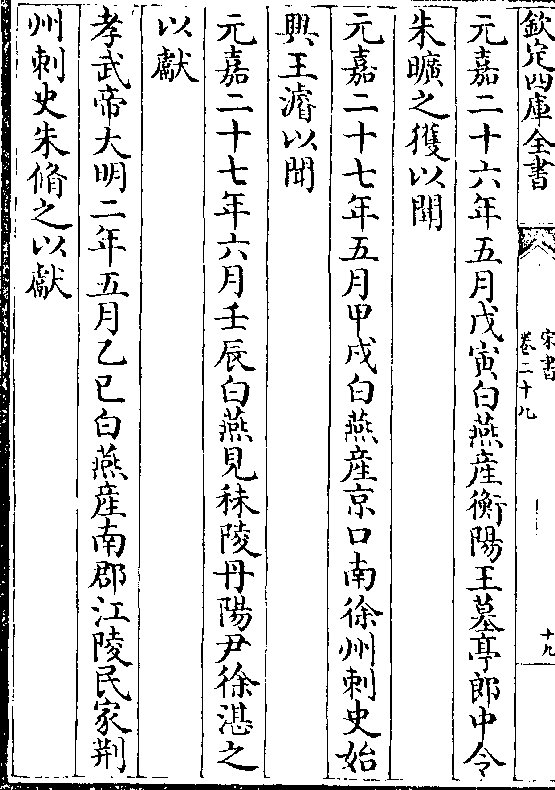 欽定四庫全書
宋書
卷二十九
十九
元嘉二十六年五月戊寅白燕産衡陽王墓亭郎中令
朱曠之獲以聞
元嘉二十七年五月甲戌白燕産京口南徐州刺史始
興王濬以聞
元嘉二十七年六月壬辰白燕見秣陵丹陽尹徐湛之
以獻
孝武帝大明二年五月乙巳白燕産南郡江陵民家荆
州刺史朱脩之以獻